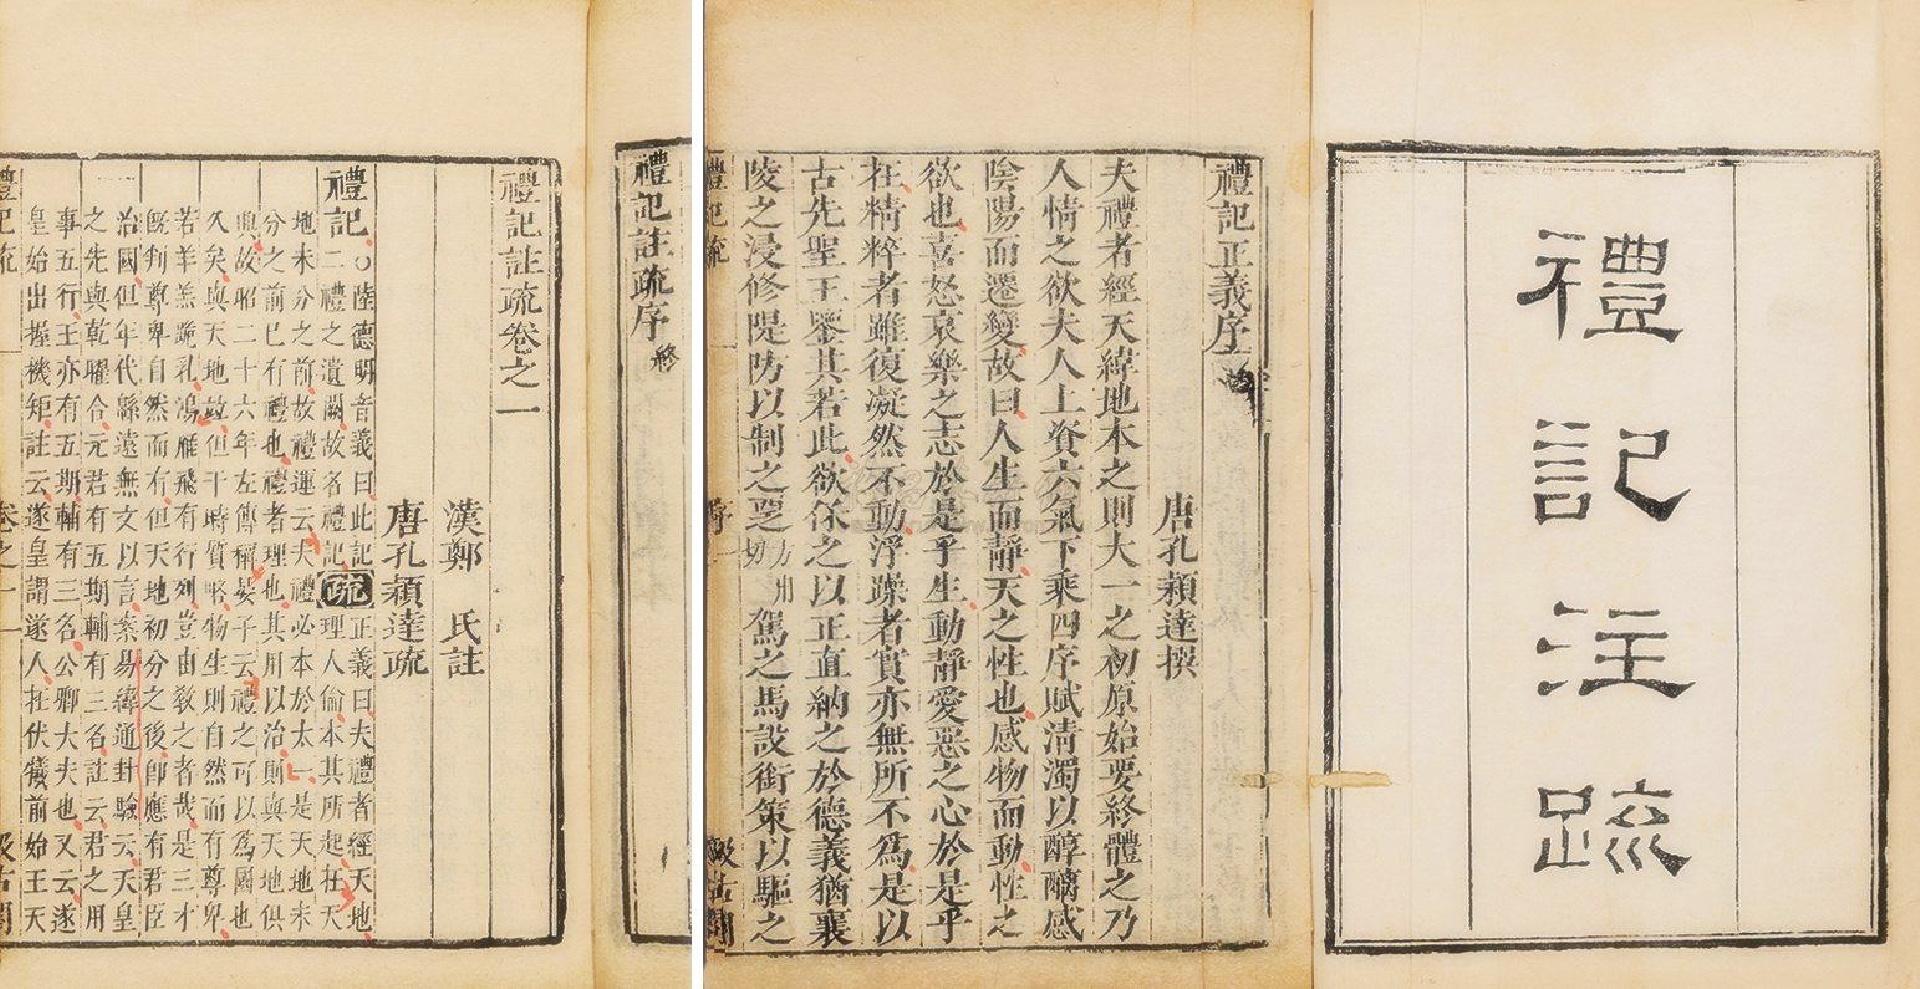 禮記注疏
禮記正義序
唐孔穎達撰
夫禮者經天緯地本之則大一之初原始要終體之乃
人情之欲夫人上資六氣下乘四序賦清濁以醇醨感
陰陽而遷變故曰人生而靜天之性也感物而動性之
欲也喜怒哀樂之志於是乎生動靜愛惡之心於是乎
在精粹者雖復凝然不動浮躁者實亦無所不爲是以
古先聖王鑒其若此欲保之以正直納之於德義猶襄
陵之浸修隄防以制之覂
方用
切
駕之馬設銜策以驅之
禮記疏
序
汲古閣
禮記註疏序
終
禮記註疏卷之一
漢鄭 氏註
唐孔穎達疏
禮記
○陸德明音義曰此記
二禮之遺闕故名禮記
疏
正義曰夫禮者經天地
理人倫本其所起在天
地未分之前故禮運云夫禮必本於太一是天地未
分之前已有禮也禮者理也其用以治則與天地俱
興故昭二十六年左傳稱晏子云禮之可以爲國也
久矣與天地竝但于時質略物生則自然而有尊卑
若羊羔跪乳鴻雁飛有行列豈由敎之者哉是三才
旣判尊卑自然而有但天地初分之後卽應有君臣
治國但年代緜遠無文以言案易緯通卦驗云天皇
之先與乾曜合元君有五期輔有三名註云君之用
事五行王亦有五期輔有三名公卿大夫也又云遂
皇始出握機矩註云遂皇謂遂人在伏犧前始王天
禮記疏
卷之一
一
汲古閣